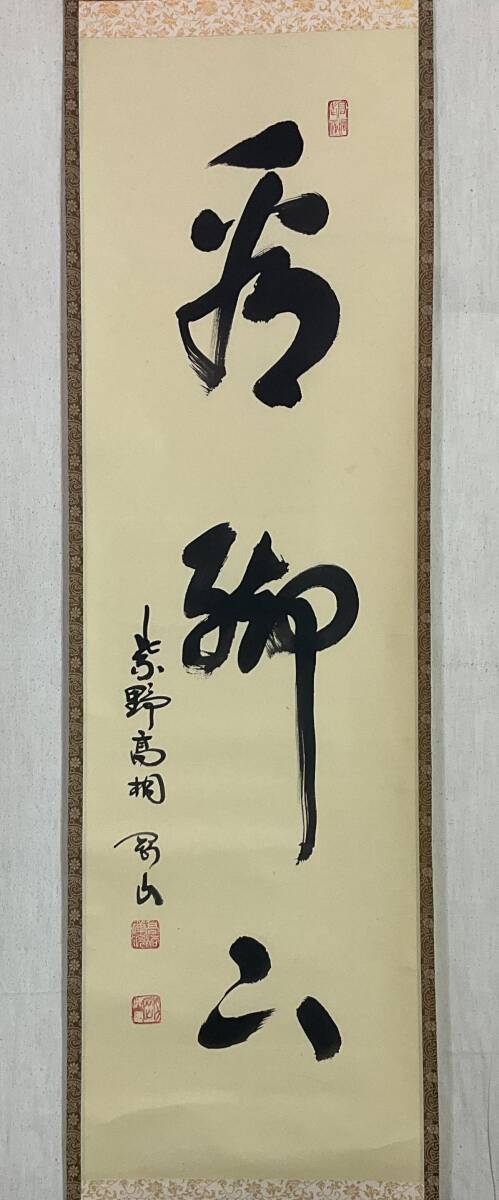 看脚下
紫野高桐 剛山